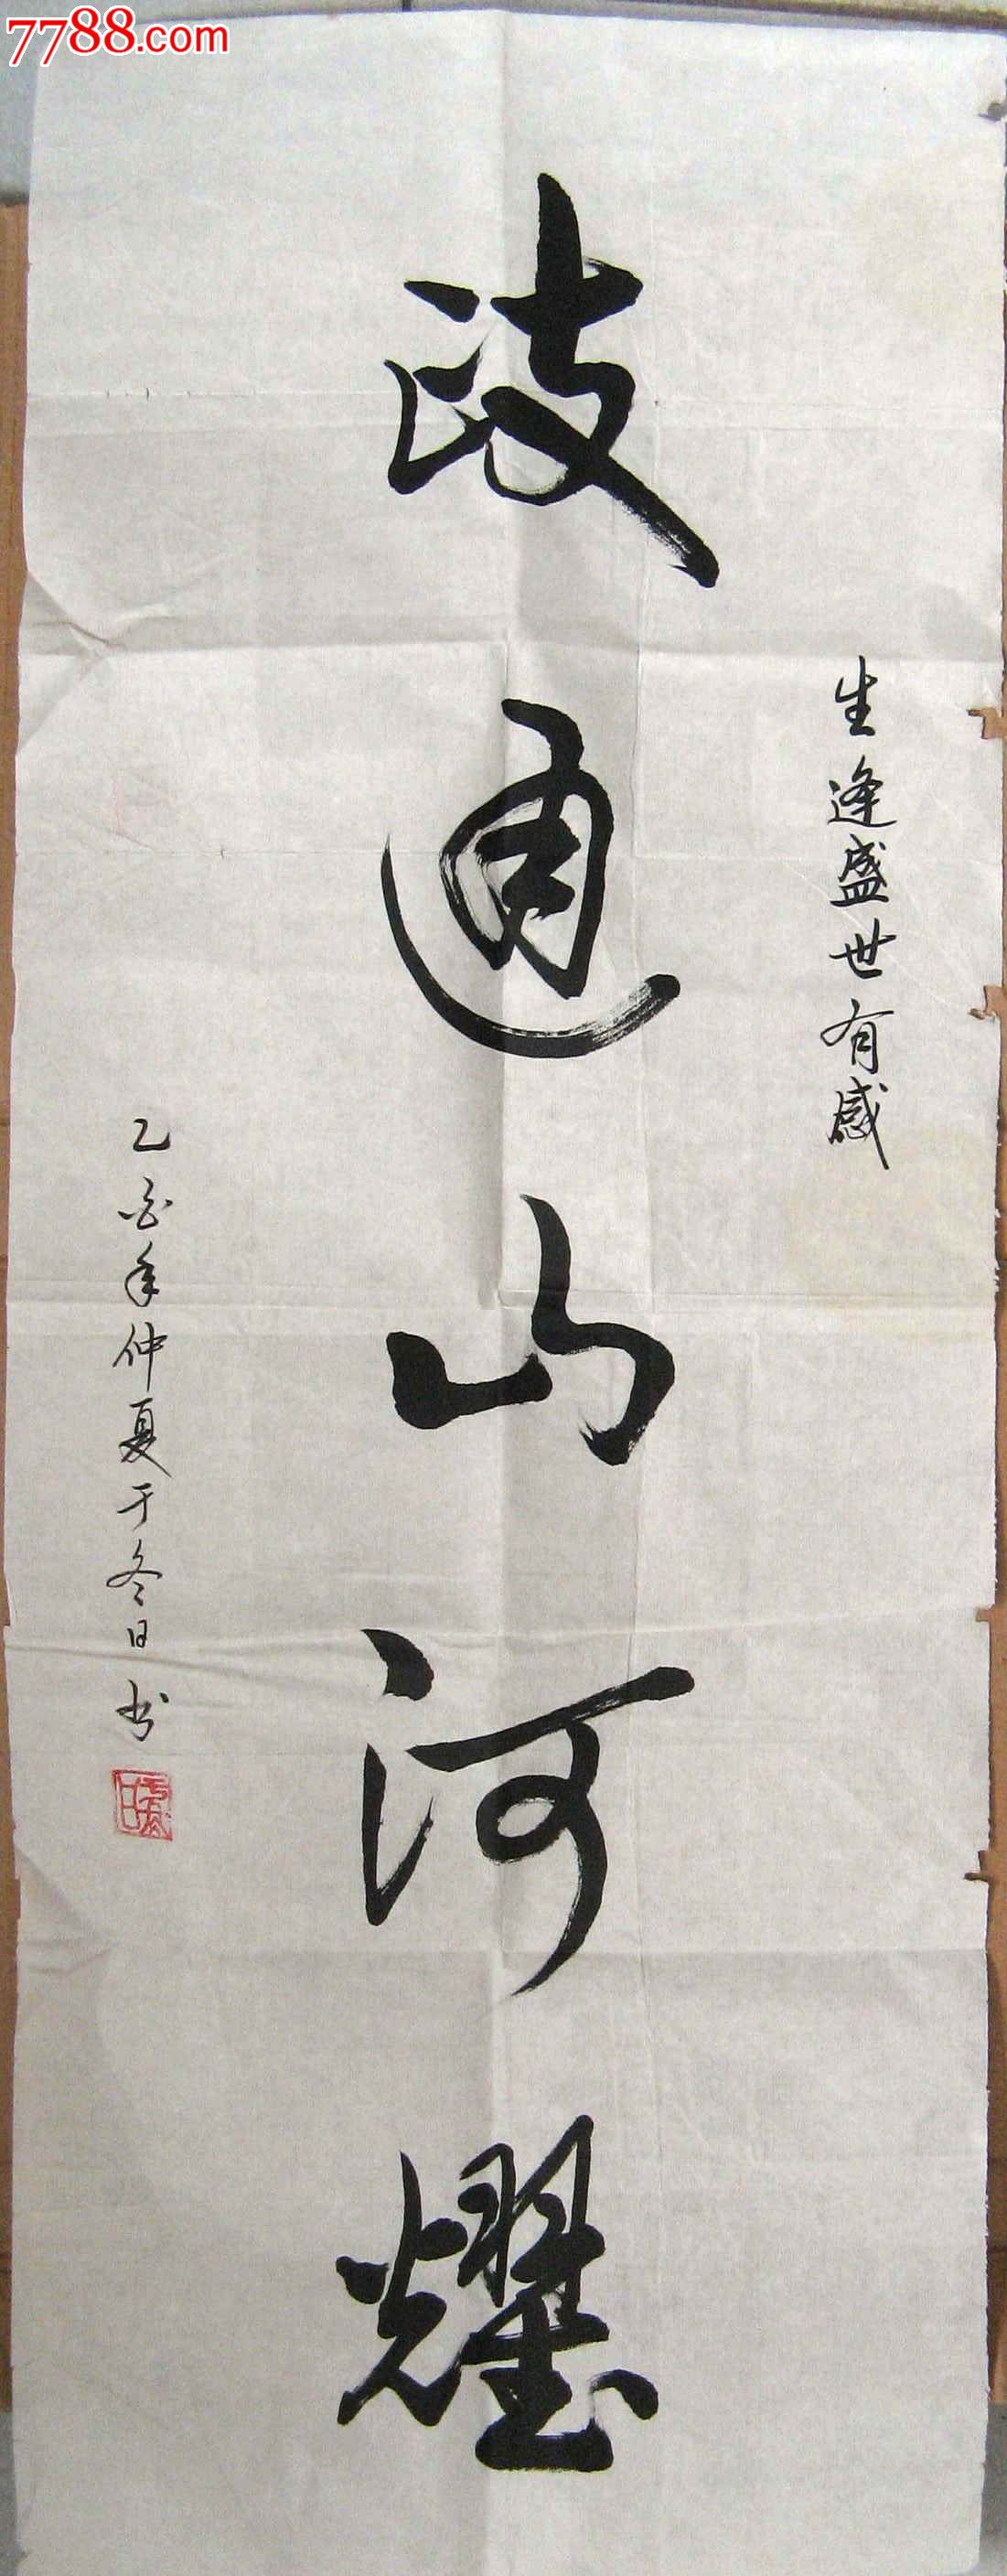 7788.com
生逢盛世有感
政通山河耀
乙酉年仲夏于冬日书